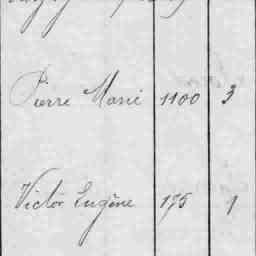 Pierre Marie 1100 3
Victor Eugène 175 1